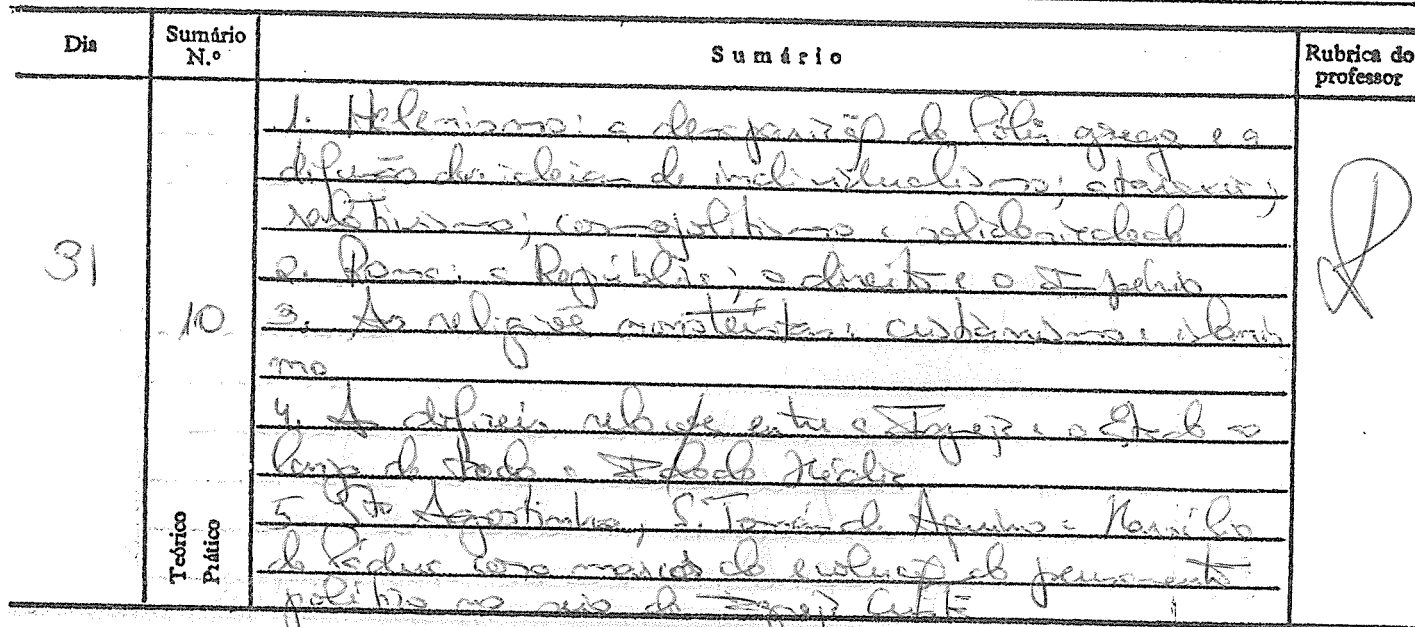 Dia
Sumário N.º
Sumário
Rubrica do professor
31
10
Teórico
Prático
1. Helenismo: a desaparição da Pólis grega e a
difusão das ideias de individualismo; ataraxia;
relativismo; cosmopolitismo e solidariedade
2. Roma: a República; o direito e o Império
3. As religiões monoteístas: cristianismo e islamis
mo
4. As difíceis relações entre a Igreja e o Estado ao
longo de toda a Idade Média
5. Sto Agostinho, S. Tomás de Aquino e Marsílio
de Pádua como marcos da evolução do pensamento
político no seio da Igreja